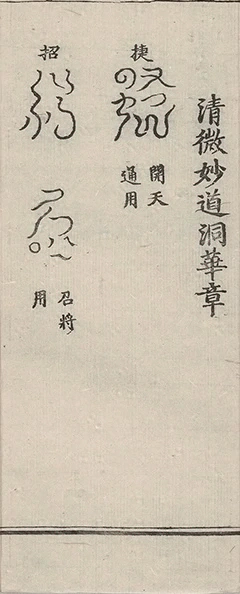 清微妙道洞華章
捷
開天
通用
招
召將
用